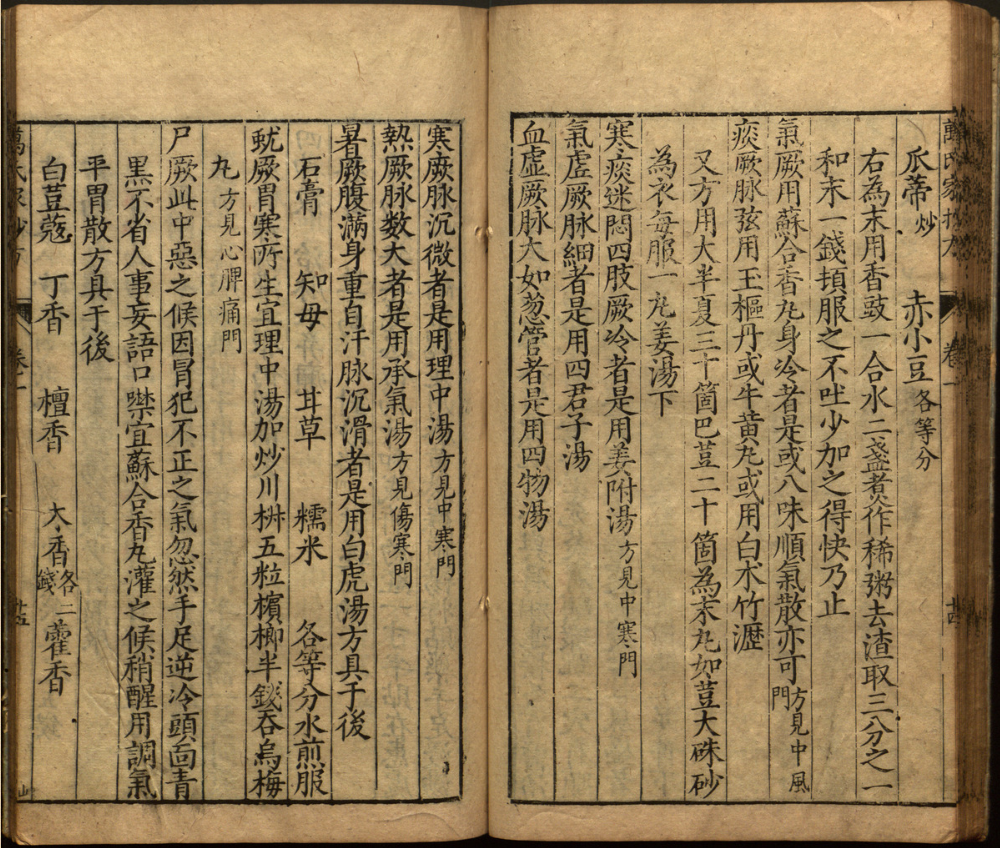 萬氏家抄方 卷一
瓜蒂炒 赤小豆各等分
右為末用香豉一合水二盞煑作稀粥去渣取三分之一
和末一錢頓服之不吐少加之得快乃止
氣厥用蘇合香丸身冷者是或八味順氣散亦可方見中風門
痰厥脉弦用玉樞丹或牛黄丸或用白术竹瀝
又方用大半夏三十箇巴荳二十箇為末丸如荳大硃砂
為衣每服一丸姜湯下
寒痰迷悶四肢厥冷者是用姜附湯方見中寒門
氣虚厥脉細者是用四君子湯
血虚厥脉大如葱管者是用四物湯
寒厥脉沉微者是用理中湯方見中寒門
熱厥脉數大者是用承氣湯方見傷寒門
暑厥腹滿身重自汗脉沉滑者是用白虎湯方具于後
石膏 知母 甘草 糯米 各等分水煎服
蚘厥胃寒所生宜理中湯加炒川椒五粒檳榔半錢吞烏梅
丸方見心脾痛門
尸厥此中惡之候因冒犯不正之氣忽然手足逆冷頭面青
黑不省人事妄語口噤宜蘇合香丸灌之候稍醒用調氣
平胃散方具于後
白荳蔻 丁香 檀香 木香各二錢 藿香
萬氏家抄方 卷一